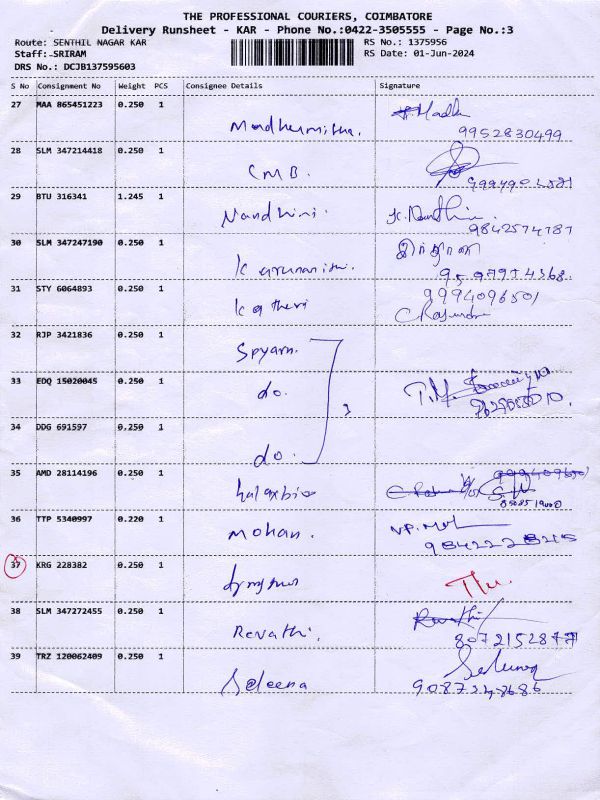 THE PROFESSIONAL COURIERS, COIMBATORE
Delivery Runsheet - KAR - Phone No.:0422-3505555 - Page No.:3
Route: SENTHIL NAGAR KAR
RS No.: 1375956
Staff: SRIRAM
RS Date: 01-Jun-2024
DRS No.: DCJB137595603
S No Consignment No Weight PCS Consignee Details Signature
27 MAA 865451223 0.250 1
9952830499
28 SLM 347214418 0.250 1 CMB.
29 BTU 316341 1.245 1 Nandhini.
9842574787
30 SLM 347247190 0.250 1
31 STY 6064893 0.250 1
9994096501
32 RJP 3421836 0.250 1 Spyarn.
33 EDQ 15020045 0.250 1 do.
34 DDG 691597 0.250 1 do.
35 AMD 28114196 0.250 1
36 TTP 5340997 0.220 1 Mohan.
37 KRG 228382 0.250 1
38 SLM 347272455 0.250 1 Revathi. Revathi
8072152877
39 TRZ 120062409 0.250 1 Seleena
9087248686